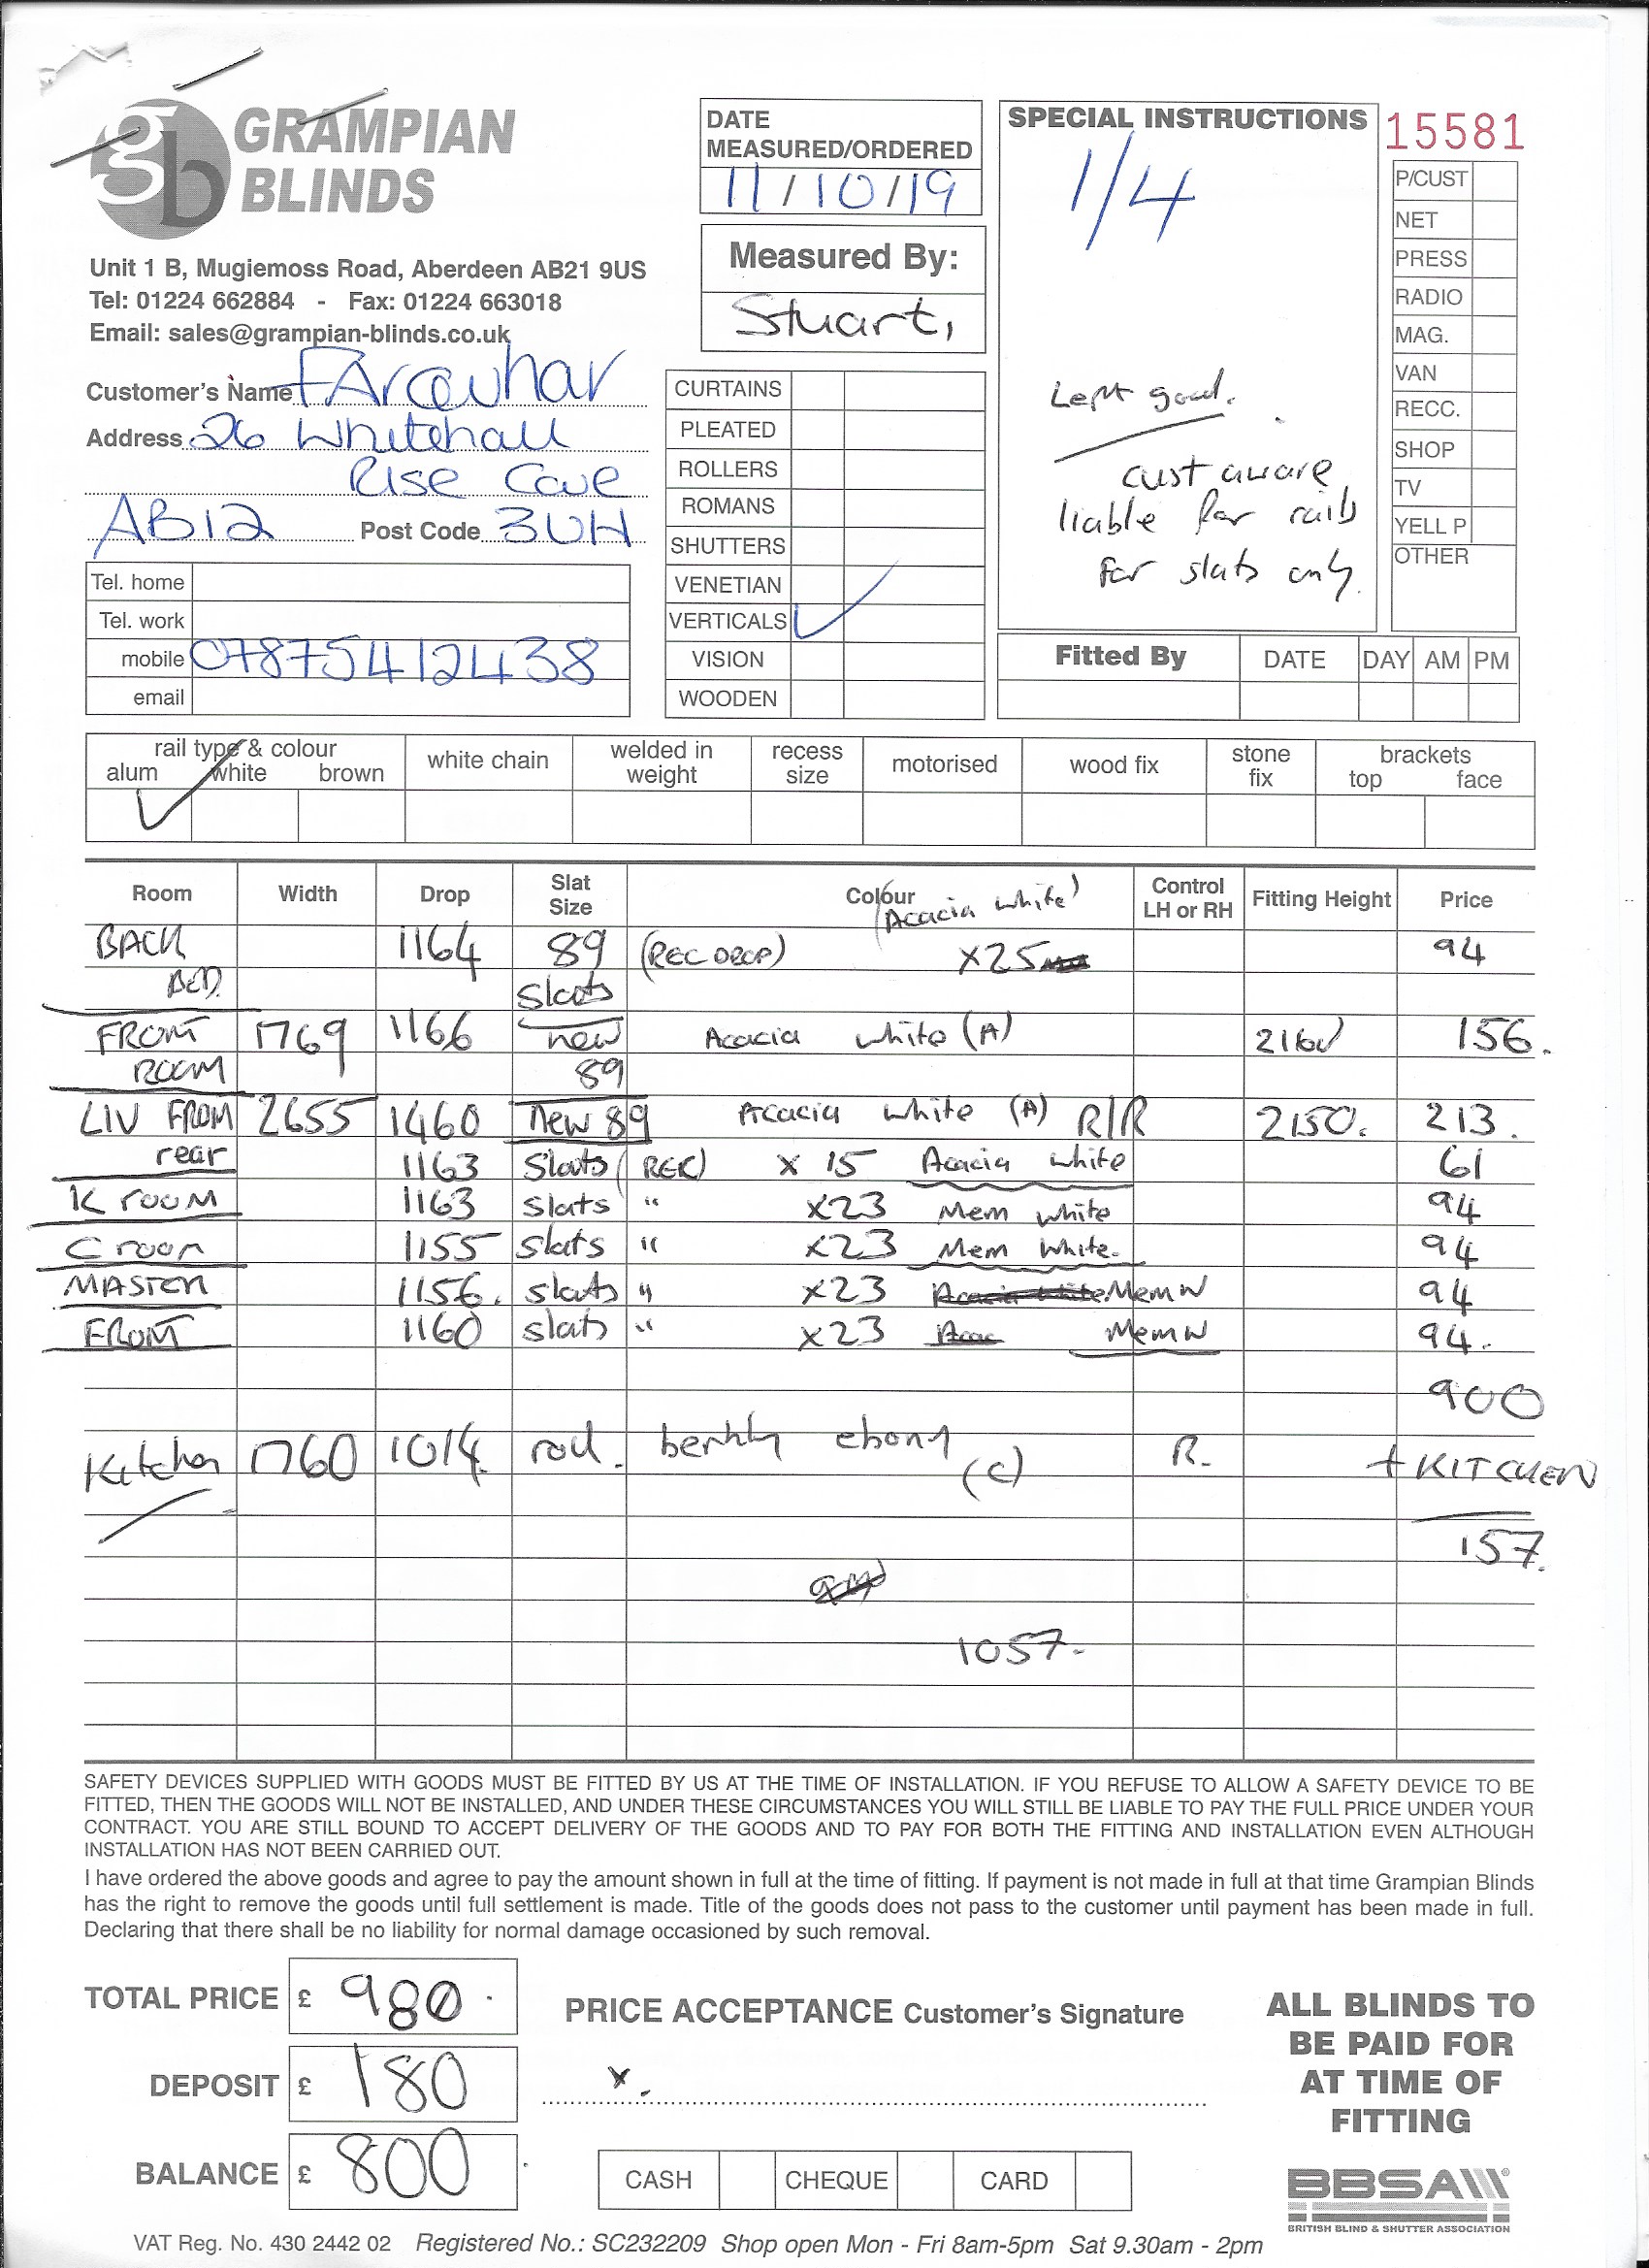 GRAMPIAN
BLINDS
Unit 1 B, Mugiemoss Road, Aberdeen AB21 9US
Tel: 01224 662884 - Fax: 01224 663018
Email: sales@grampian-blinds.co.uk
DATE
MEASURED/ORDERED
11/10/19
Measured By:
Stuart,
SPECIAL INSTRUCTIONS
1/4
Left good.
cust aware
liable for rails
for slats only.
15581
P/CUST
NET
PRESS
RADIO
MAG.
VAN
RECC.
SHOP
TV
YELL P
OTHER
Customer's Name FArquhar
Address 26 Whitehall
Rise Cove
AB12 Post Code 3UH
Tel. home
Tel. work
mobile 07875412438
email
CURTAINS
PLEATED
ROLLERS
ROMANS
SHUTTERS
VENETIAN
VERTICALS ✓
VISION
WOODEN
Fitted By DATE DAY AM PM
rail type & colour white chain welded in weight recess size motorised wood fix stone fix brackets
alum white brown top face
✓
Room Width Drop Slat Size Colour Control LH or RH Fitting Height Price
(Acacia white)
BACK 1164 89 (REC DROP) x25 94
BED. Slats
FRONT 1769 1166 new Acacia white (A) 2160 156.
ROOM 89
LIV FROM 2655 1460 new 89 Acacia white (A) R/R 2150. 213.
rear 1163 Slats (REC) x 15 Acacia white 61
K ROOM 1163 slats " x23 Mem white 94
C room 1155 slats " x23 Mem White. 94
MASTER 1156. slats " x23 Acacia white Mem W 94
FRONT 1160 slats " x23 Acac Mem W 94.
900
Kitchen 1760 1014. roll. ebony (C) R. + KITCHEN
157.
1057.
SAFETY DEVICES SUPPLIED WITH GOODS MUST BE FITTED BY US AT THE TIME OF INSTALLATION. IF YOU REFUSE TO ALLOW A SAFETY DEVICE TO BE
FITTED, THEN THE GOODS WILL NOT BE INSTALLED, AND UNDER THESE CIRCUMSTANCES YOU WILL STILL BE LIABLE TO PAY THE FULL PRICE UNDER YOUR
CONTRACT. YOU ARE STILL BOUND TO ACCEPT DELIVERY OF THE GOODS AND TO PAY FOR BOTH THE FITTING AND INSTALLATION EVEN ALTHOUGH
INSTALLATION HAS NOT BEEN CARRIED OUT.
I have ordered the above goods and agree to pay the amount shown in full at the time of fitting. If payment is not made in full at that time Grampian Blinds
has the right to remove the goods until full settlement is made. Title of the goods does not pass to the customer until payment has been made in full.
Declaring that there shall be no liability for normal damage occasioned by such removal.
TOTAL PRICE £ 980.
DEPOSIT £ 180
BALANCE £ 800
PRICE ACCEPTANCE Customer's Signature
x.
CASH CHEQUE CARD
ALL BLINDS TO
BE PAID FOR
AT TIME OF
FITTING
BBSA
BRITISH BLIND & SHUTTER ASSOCIATION
VAT Reg. No. 430 2442 02 Registered No.: SC232209 Shop open Mon - Fri 8am-5pm Sat 9.30am - 2pm